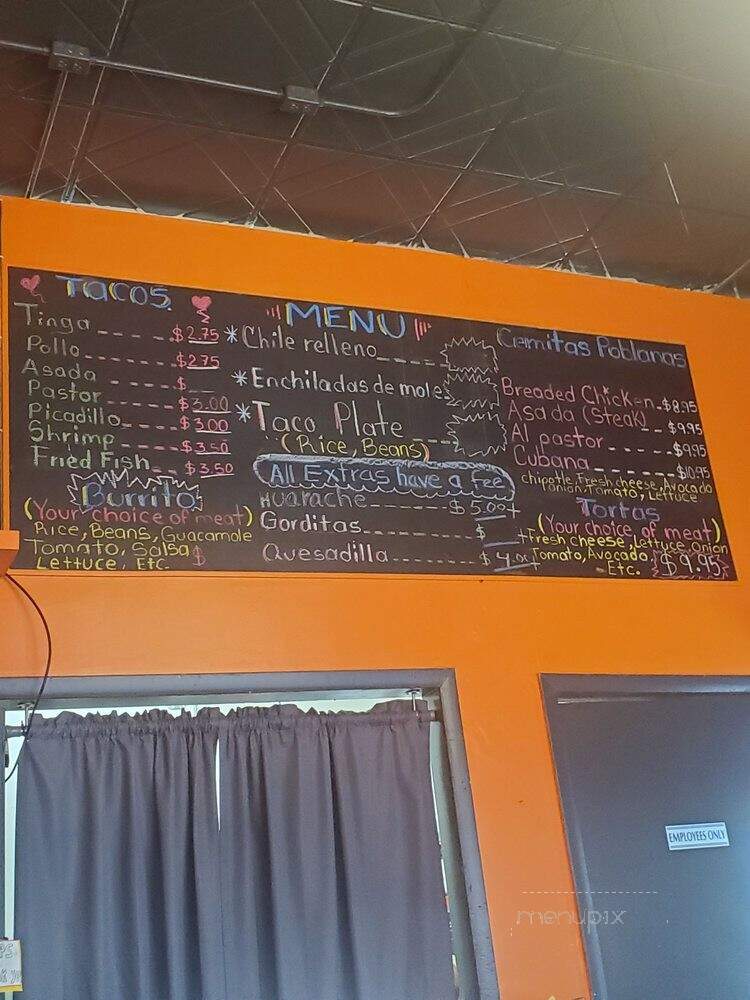 Tacos
Tinga ---- $2.75
Pollo ---- $2.75
Asada ---- $
Pastor ---- $3.00
Picadillo ---- $3.00
Shrimp ---- $3.50
Fried Fish -- $3.50
Burrito
(Your choice of meat)
Rice, Beans, Guacamole
Tomato, Salsa $
Lettuce, Etc.
MENU
*Chile relleno ----
*Enchiladas de mole
*Taco Plate
(Rice, Beans)
All Extras have a fee
Huarache ---- $5.00+
Gorditas ---- $ +
Quesadilla ---- $4.00+
Cemitas Poblanas
Breaded Chicken - $8.95
Asada (Steak) -- $9.95
Al pastor ---- $9.95
Cubana ---- $10.95
chipotle, Fresh cheese, Avocado
onion, Tomato, Lettuce
Tortas
(Your choice of meat)
Fresh cheese, Lettuce, Onion
Tomato, Avocado
- Etc. $9.95
EMPLOYEES ONLY
menupix